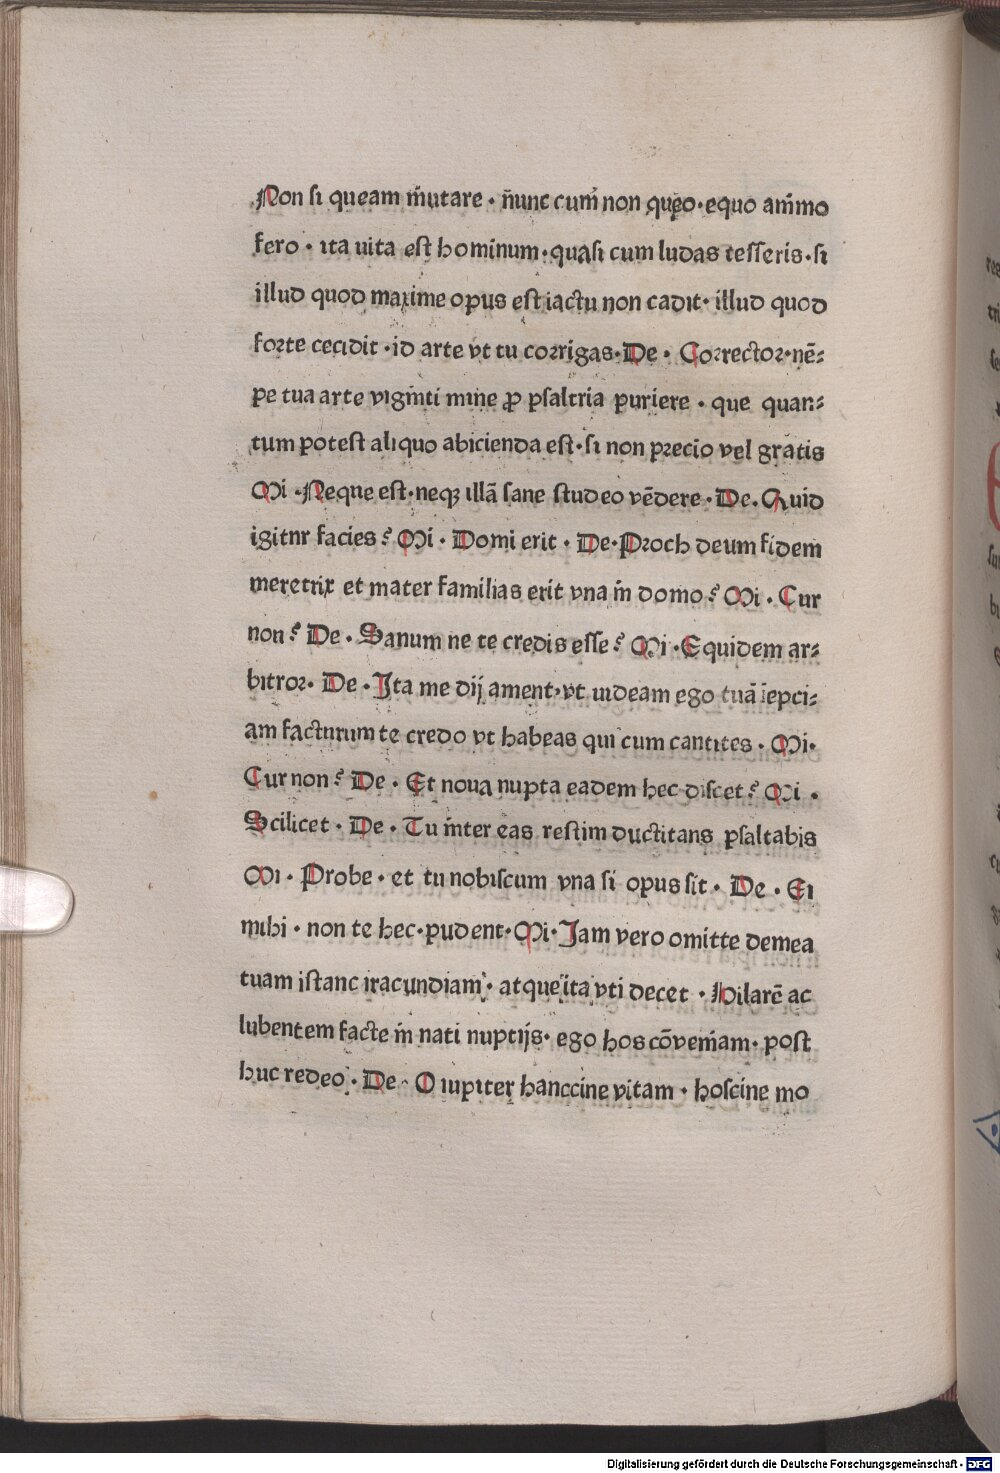 Non si queam m̄utare · n̄unc cum̄ non queo · equo anīmo
fero · ita uita est hominum · quasi cum ludas tesseris · si
illud quod maxime opus est iactu non cadit · illud quod
forte cecidit · id arte vt tu corrigas · De · Corrector · nē⸗
pe tua arte viginti mine ꝓ psaltria puriere · que quan⸗
tum potest aliquo abicienda est · si non precio vel gratis
Mi · Neque est · neqꝫ illā sane studeo vēdere · De. Quid
igitnr facies ? Mi · Domi erit · De · Proch deum fidem
meretrix et mater familias erit vna in domo ? Mi · Cur
non ? De · Sanum ne te credis esse ? Mi · Equidem ar⸗
bitror · De · Ita me dij ament · vt uideam ego tuā īepci⸗
am facturum te credo vt habeas qui cum cantites · Mi ·
Cur non ? De · Et noua nupta eadem hec discet ? Mi ·
Scilicet · De · Tu inter eas restim ductitans psaltabis
Mi · Probe · et tu nobiscum vna si opus sit · De · Ei
mihi · non te hec · pudent · Mi · Iam vero omitte demea
tuam istanc iracundiam · atque ita vti decet · Hilarē ac
lubentem facte in nati nuptijs · ego hos cōveniam · post
huc redeo · De · O iupiter hanccine vitam · hoscine mo
Digitalisierung gefördert durch die Deutsche Forschungsgemeinschaft - DFG